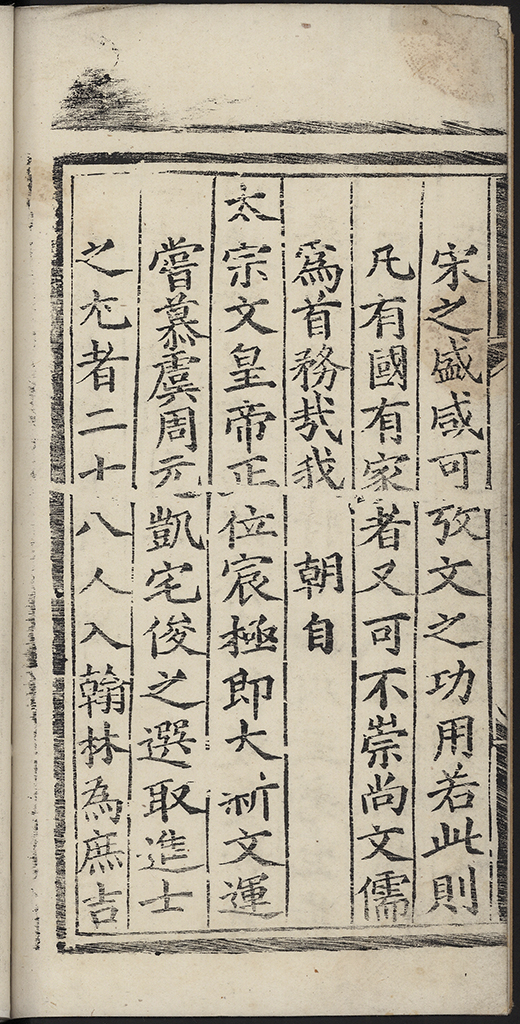 宋之盛咸可攷文之功用若此則
凡有國有家者又可不崇尚文儒
爲首務㢤我　朝自
太宗文皇帝正位宸極即大新文運
嘗慕虞周元凱宅俊之選取進士
之尤者二十八人入翰林為庶吉